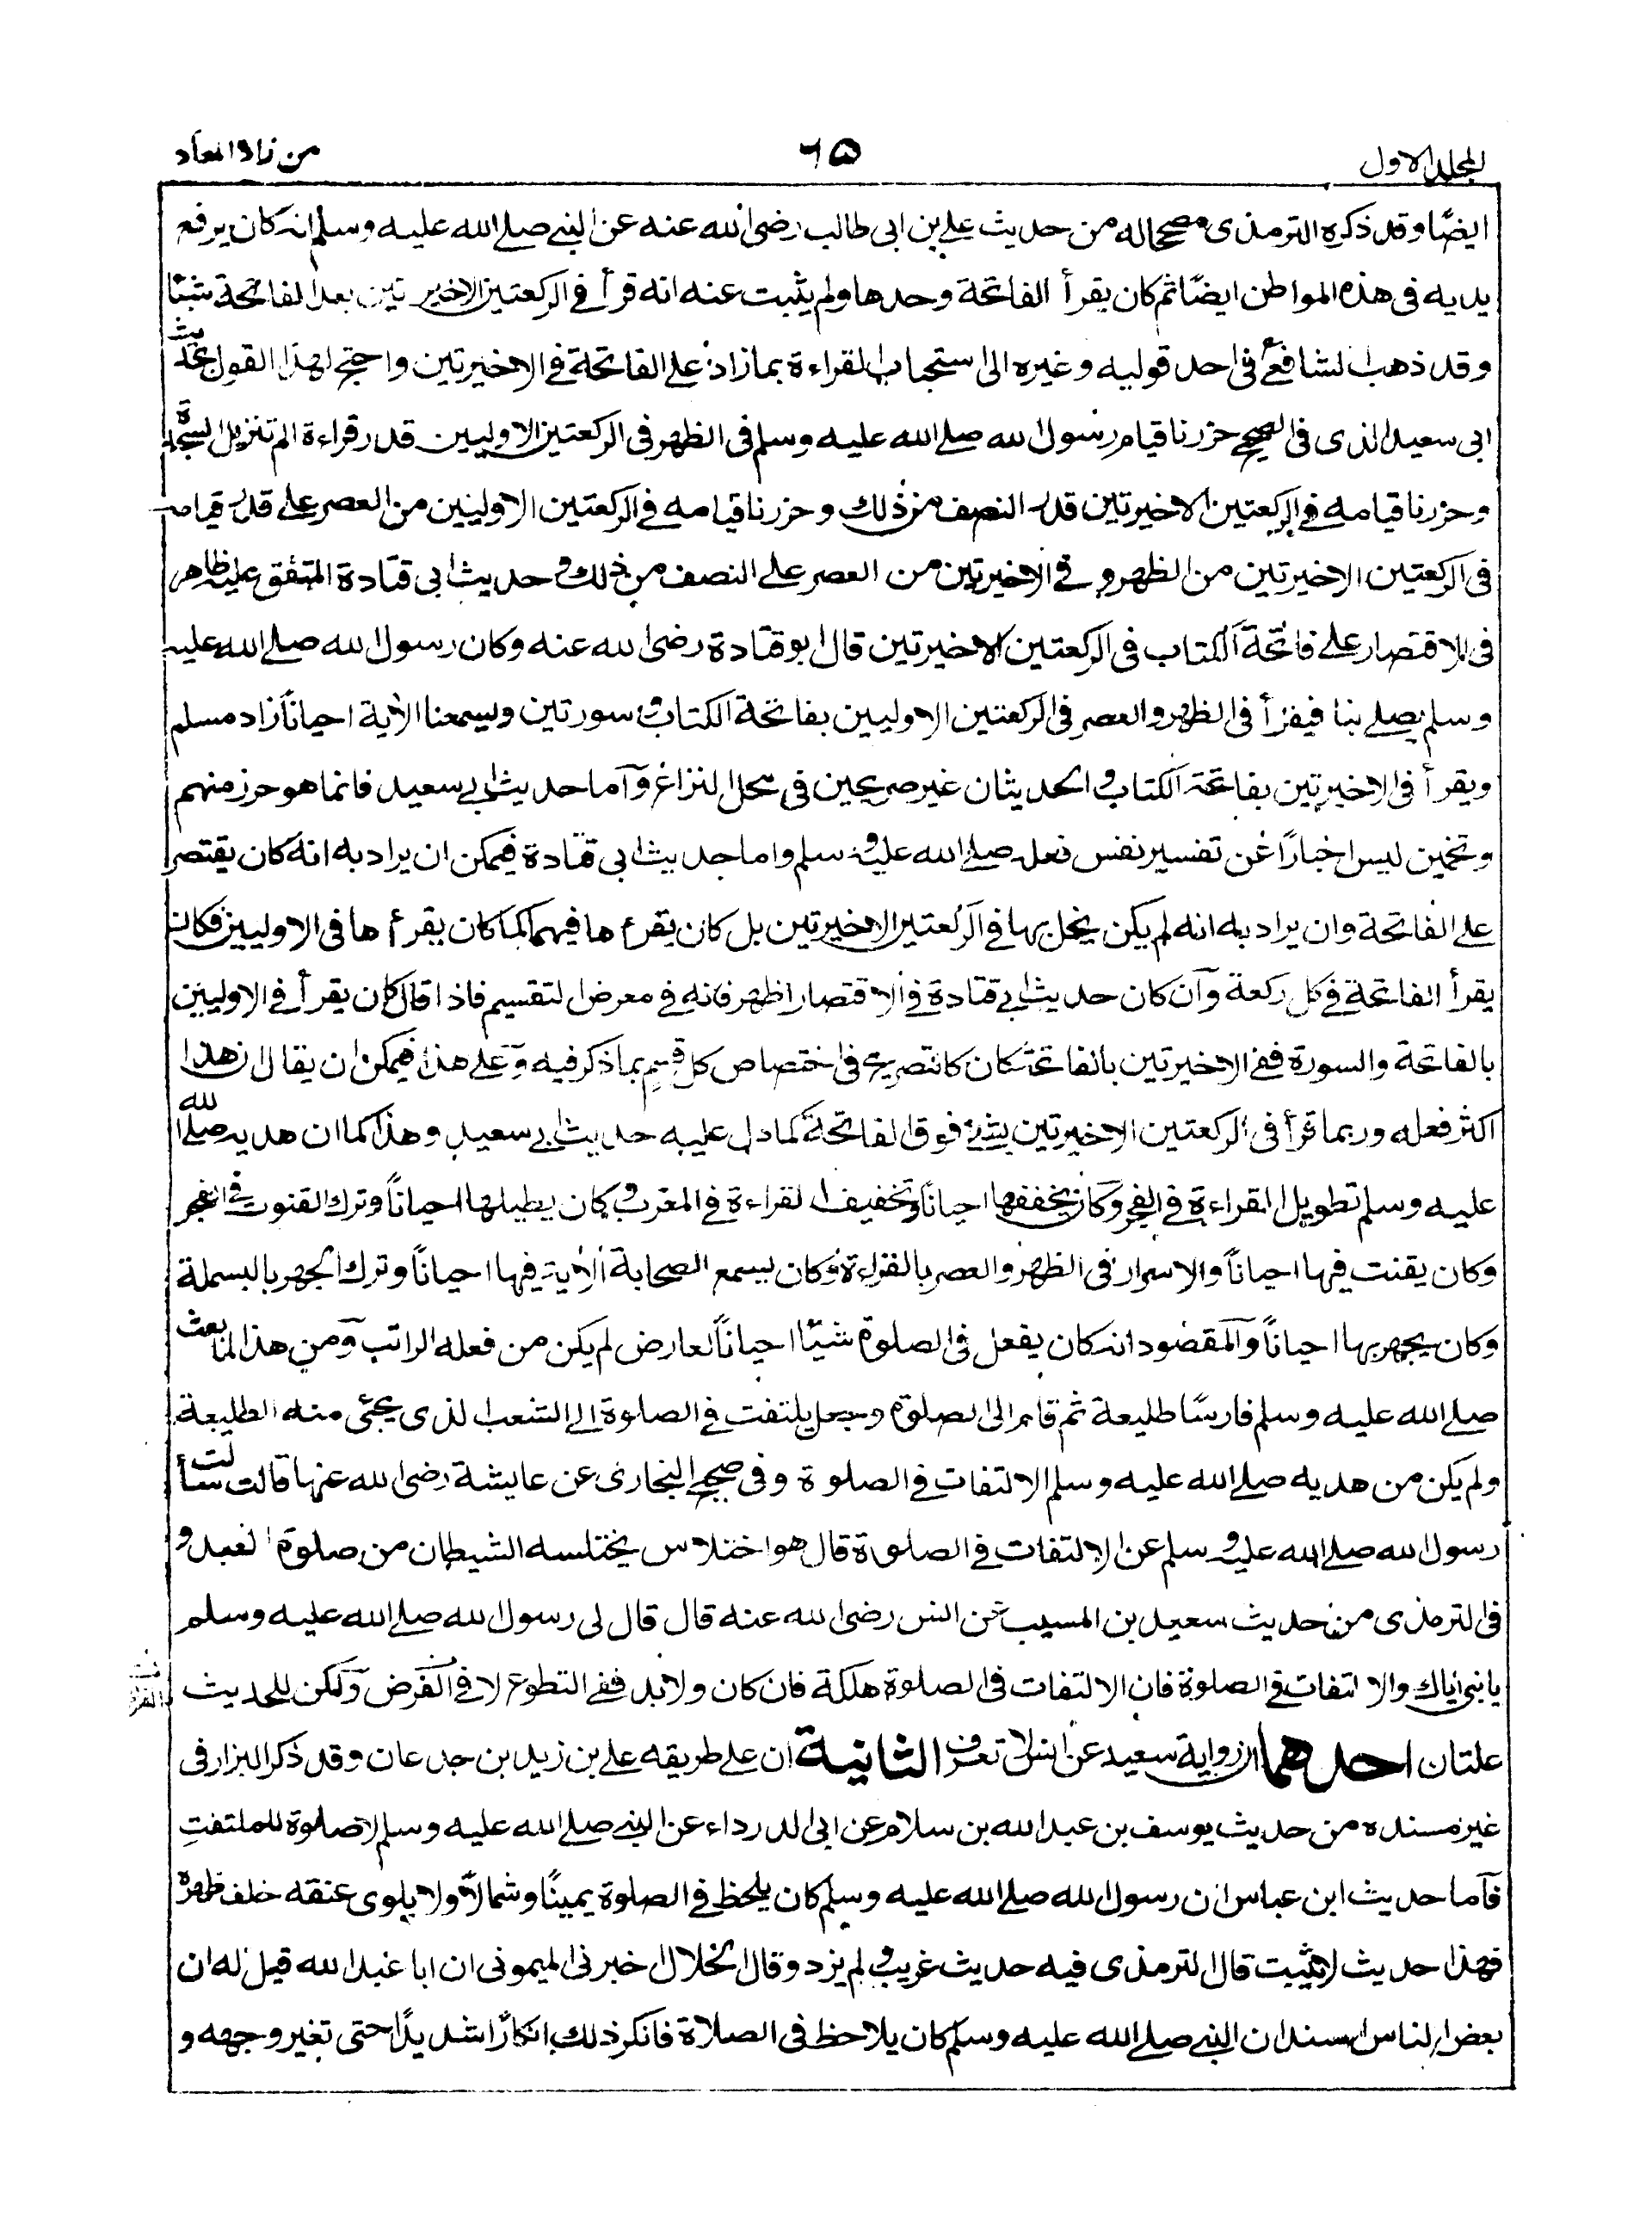 المجلد الاول
٦٥
من زاد المعاد
ايضًا وقد ذكره الترمذى مصححاله من حديث على بن ابى طالب رضى الله عنه عن النبى صلے الله عليه وسلم انه كان يرفع
يديه فى هذه المواطن ايضًا ثم كان يقرأ الفاتحة وحدها ولم يثبت عنه انه قرأ فى الركعتين الاخيرتين بعد الفاتحة شيئا
وقد ذهب الشافعى فى احد قوليه وغيره الى استحباب القراءة بما زاد على الفاتحة فى الاخيرتين واحتج لهذا القول بحديث
ابى سعيد الذى فى الصحيح حزرنا قيام رسول الله صلے الله عليه وسلم فى الظهر فى الركعتين الاوليين قدر قراءة الم تنزيل السجدة
وحزرنا قيامه فى الركعتين الاخيرتين قدر النصف من ذلك وحزرنا قيامه فى الركعتين الاوليين من العصر على قدر قيامه
فى الركعتين الاخيرتين من الظهر و فى الاخيرتين من العصر على النصف من ذلك وحديث ابى قتادة المتفق عليه ظاهر
فى الاقتصار على فاتحة الكتاب فى الركعتين الاخيرتين قال ابو قتادة رضى الله عنه وكان رسول الله صلے الله عليه
وسلم يصلے بنا فيقرأ فى الظهر والعصر فى الركعتين الاوليين بفاتحة الكتاب و سورتين ويسمعنا الاية احياناً زاد مسلم
ويقرأ فى الاخيرتين بفاتحة الكتاب و الحديثان غير صريحين فى محل النزاع وآما حديث ابى سعيد فانما هو حزر منهم
وتخمين ليس اخبارًا عن تفسير نفس فعله صلے الله عليه وسلم واما حديث ابى قتادة فيمكن ان يراد به انه كان يقتصر
على الفاتحة وان يراد به انه لم يكن يخل بها فى الركعتين الاخيرتين بل كان يقرء ها فيهما كما كان يقرء ها فى الاوليين فكان
يقرأ الفاتحة فى كل ركعة وآن كان حديث ابى قتادة فى الاقتصار اظهر فانه فى معرض التقسيم فاذا قال كان يقرأ فى الاوليين
بالفاتحة والسورة ففى الاخيرتين بالفاتحة كان كالتصريح فى اختصاص كل قسم بما ذكر فيه وعلى هذا فيمكن ان يقال ان هذا
اكثر فعله وربما قرأ فى الركعتين الاخيرتين بشئ فوق الفاتحة كما دل عليه حديث ابى سعيد وهذا كما ان هديه صلے الله
عليه وسلم تطويل القراءة فى الفجر وكان يخففها احياناً وتخفيف القراءة فى المغرب وكان يطيلها احياناً وترك القنوت فى الفجر
وكان يقنت فيها احياناً والاسرار فى الظهر والعصر بالقراءة وكان يسمع الصحابة الاية فيها احياناً وترك الجهر بالبسملة
وكان يجهر بها احياناً والمقصود انه كان يفعل فى الصلوة شيئا احياناً لعارض لم يكن من فعله الراتب ومن هذا لما بعث
صلے الله عليه وسلم فارسًا طليعة ثم قام الى الصلوة وجعل يلتفت فى الصلوة الى الشعب الذى يجئى منه الطليعة
ولم يكن من هديه صلے الله عليه وسلم الالتفات فى الصلوة وفى صحيح البخارى عن عايشة رضى الله عنها قالت سألت
رسول الله صلے الله عليه وسلم عن الالتفات فى الصلوة قال هو اختلاس يختلسه الشيطان من صلوة العبد و
فى الترمذى من حديث سعيد بن المسيب عن انس رضى الله عنه قال قال لى رسول الله صلے الله عليه وسلم
يا بنى اياك والالتفات فى الصلوة فان الالتفات فى الصلوة هلكة فان كان ولابد ففى التطوع لا فى الفرض ولكن للحديث
علتان احدهما ان رواية سعيد عن انس لا تعرف الثانية ان على طريقه على بن زيد بن جدعان وقد ذكر البزار فى
غير مسنده من حديث يوسف بن عبد الله بن سلام عن ابى الدرداء عن النبى صلے الله عليه وسلم لا صلوة للملتفتِ
فآما حديث ابن عباس ان رسول الله صلے الله عليه وسلم كان يلحظ فى الصلوة يمينًا وشمالاً ولا يلوى عنقه خلف ظهره
فهذا حديث لا يثبت قال الترمذى فيه حديث غريب ولم يزد وقال الخلال اخبرنى الميمونى ان ابا عبد الله قيل له ان
بعض الناس اسند ان النبى صلے الله عليه وسلم كان يلاحظ فى الصلاة فانكر ذلك انكارًا شديدًا حتى تغير وجهه و